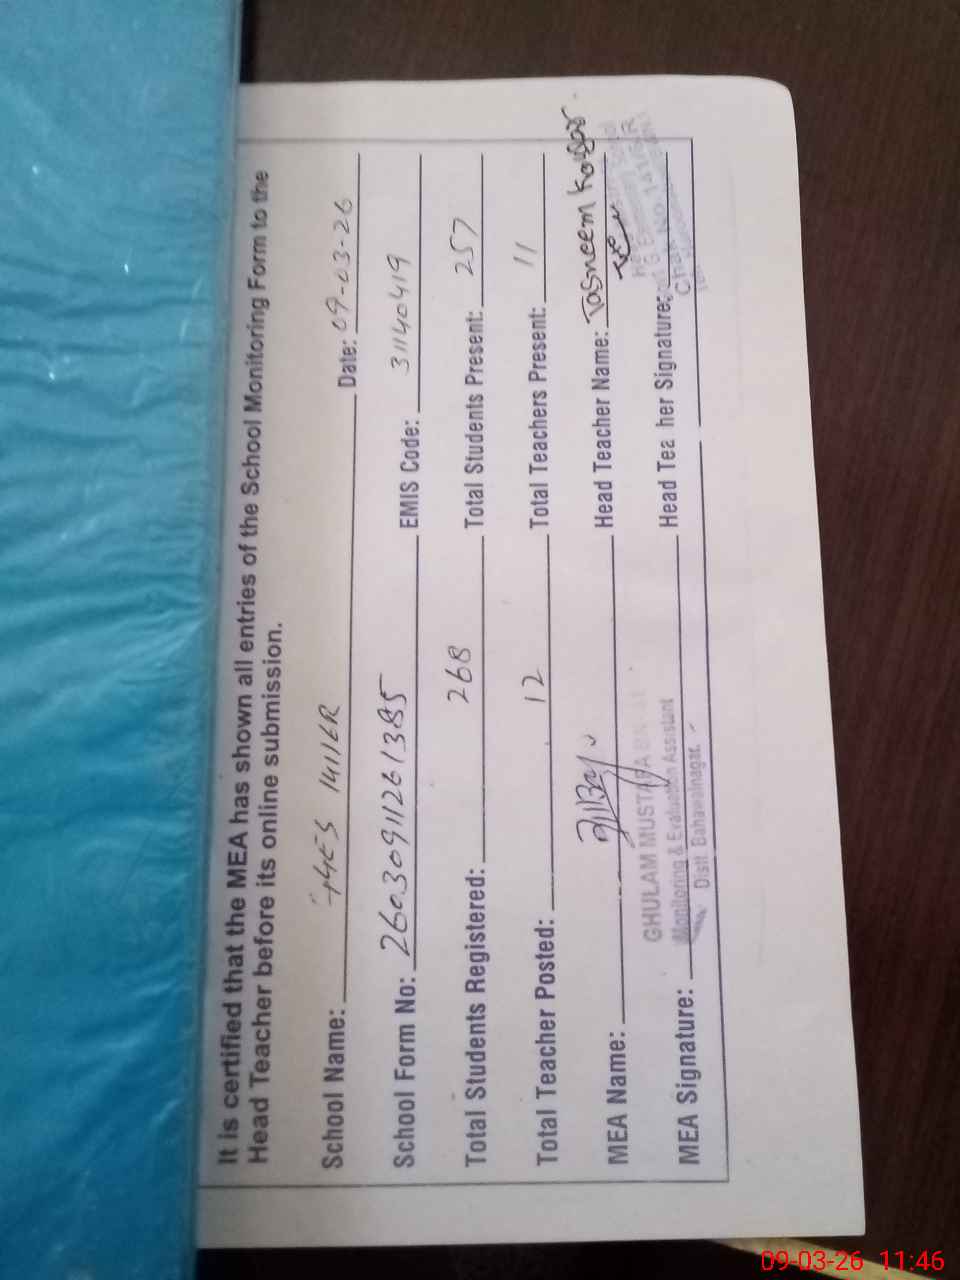 It is certified that the MEA has shown all entries of the School Monitoring Form to the
Head Teacher before its online submission.
School Name: GGES 141/6R Date: 09-03-26
School Form No: 26030911261385 EMIS Code: 31140419
Total Students Registered: 268 Total Students Present: 257
Total Teacher Posted: 12 Total Teachers Present: 11
MEA Name: Head Teacher Name: Tasneem Kousar
GHULAM MUSTAFA
Monitoring & Evaluation Assistant
Distt. Bahawalnagar.
MEA Signature: Head Tea her Signature:
Chak No 141/6R
09-03-26 11:46